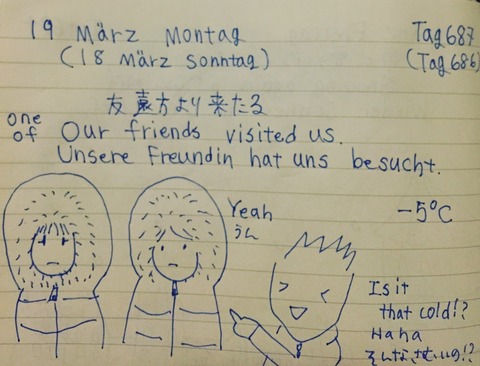 19 März Montag
Tag 687
(18 März Sonntag)
(Tag 686)
友遠方より来たる
one of Our friends visited us.
Unsere Freundin hat uns besucht.
Yeah
うん
-5°C
Is it
that cold!?
Haha
そんなさむいの!?